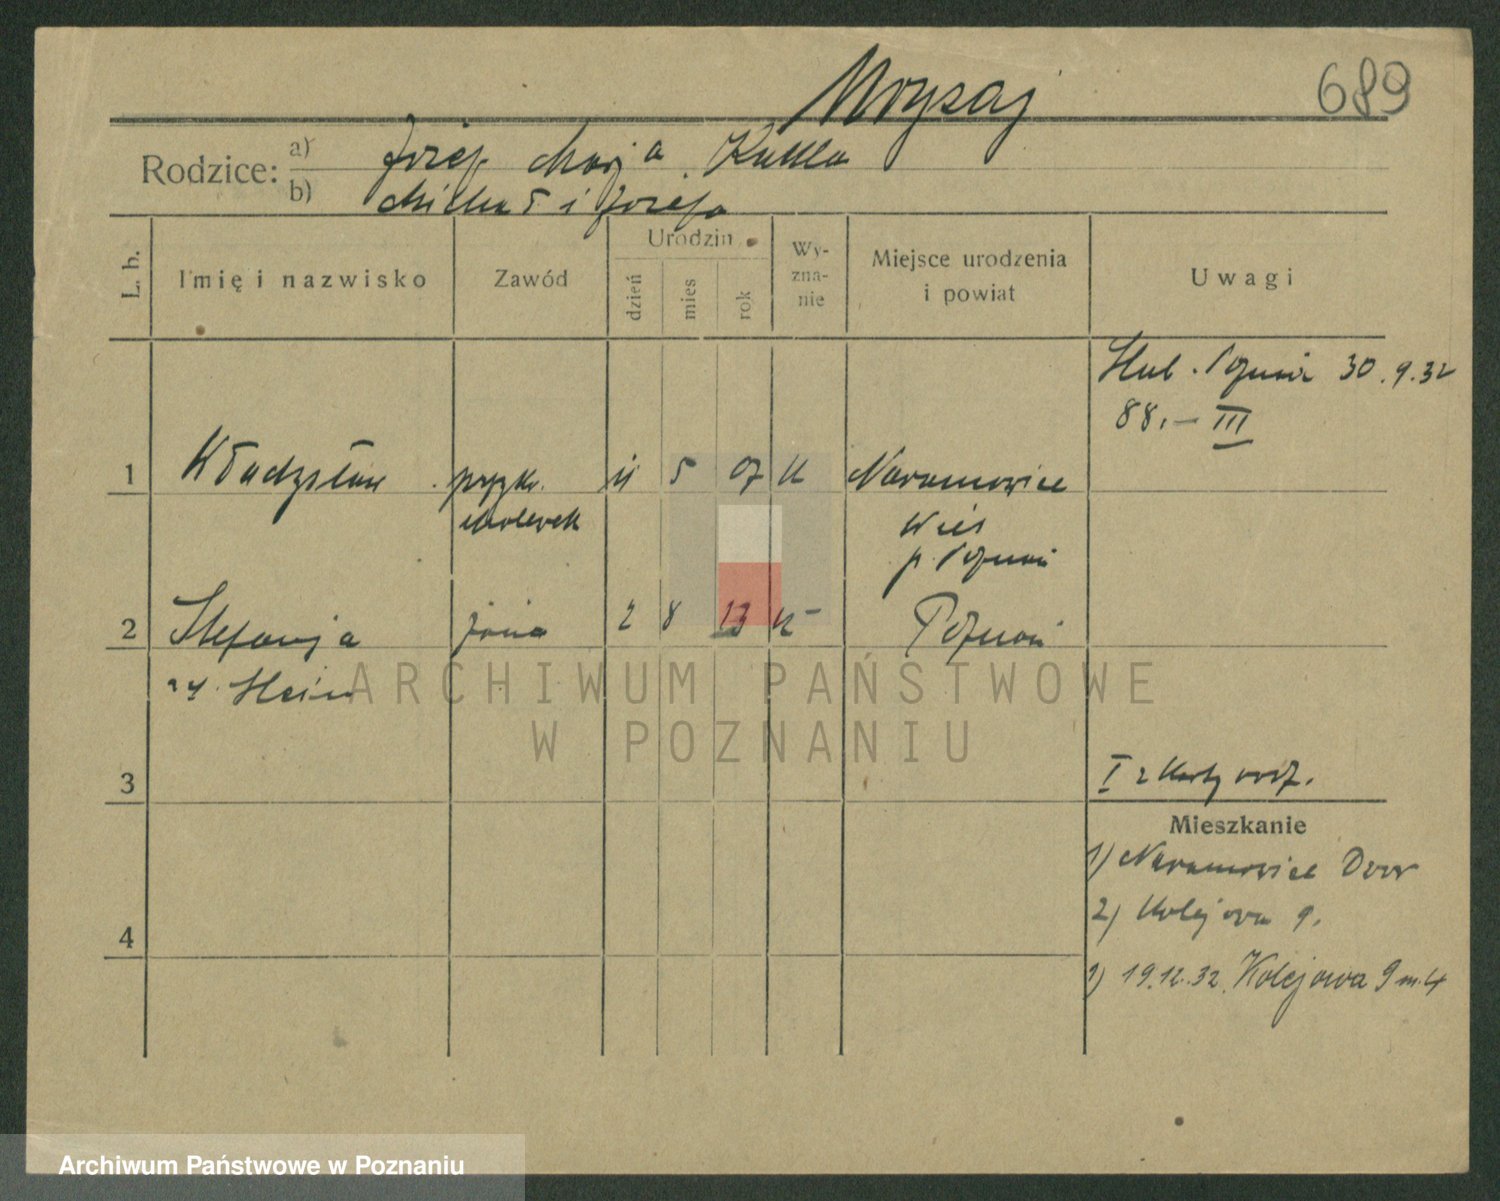 Mrysaj
689
Rodzice:
a) Józef Marja Kukla
b) Michał i Józefa
L. b.
Imię i nazwisko
Zawód
Urodzin
dzień
mies
rok
Wy-
zna-
nie
Miejsce urodzenia
i powiat
Uwagi
Ślub. Poznań 30.9.32
88.– III
1 Władysław 5 07 K Naramowice
wieś
p. Poznań
2 Stefanja żona 2 8 13 K Poznań
Hein
ARCHIWUM PAŃSTWOWE
W POZNANIU
3
I z karty
Mieszkanie
1) Naramowice Dwór
2) Kolejowa 9.
4
19.12.32. Kolejowa 9 m. 4
Archiwum Państwowe w Poznaniu